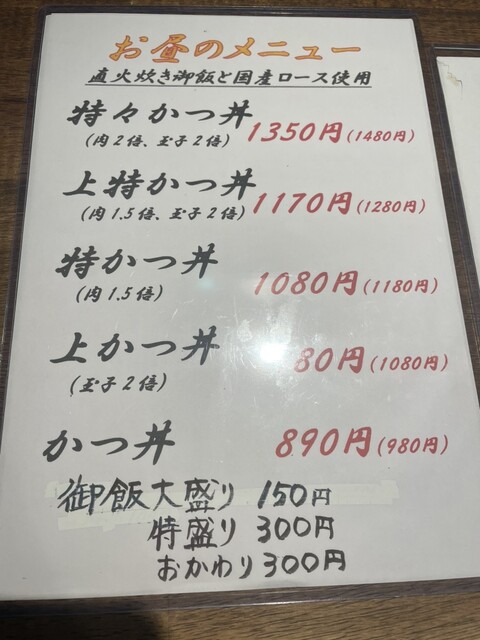 お昼のメニュー
直火炊き御飯と国産ロース使用
特々かつ丼
(肉2倍、玉子2倍) 1350円(1480円)
上特かつ丼
(肉1.5倍、玉子2倍) 1170円(1280円)
特かつ丼
(肉1.5倍) 1080円(1180円)
上かつ丼
(玉子2倍) 80円(1080円)
かつ丼 890円(980円)
御飯大盛り 150円
特盛り 300円
おかわり300円